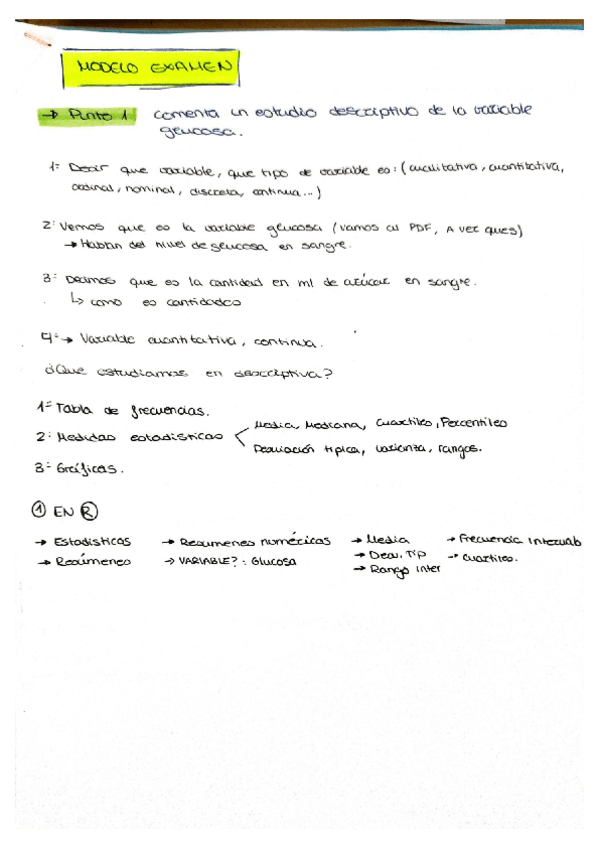 MODELO EXAMEN
→ Punto 1 comenta un estudio descriptivo de la variable
glucosa.
1º Decir que variable, que tipo de variable es: (cualitativa, cuantitativa,
ordinal, nominal, discreta, continua...)
2º Vemos que es la variable glucosa (vamos al PDF, A ver ques)
→ Hablan del nivel de glucosa en sangre.
3º Decimos que es la cantidad en ml de azúcar en sangre.
↳ como es cantidades
4º → Variable cuantitativa, continua.
¿Que estudiamos en descriptiva?
1º Tabla de frecuencias.
2º Medidas estadísticas < Media, Mediana, Cuartiles, Percentiles
Desviación típica, varianza, rangos.
3º Gráficas.
① EN R
→ Estadísticos → Resumenes numéricos → Media → Frecuencia Intervalo
→ Resúmenes → VARIABLE? : Glucosa → Desv. Tip → Cuartiles.
→ Rango inter